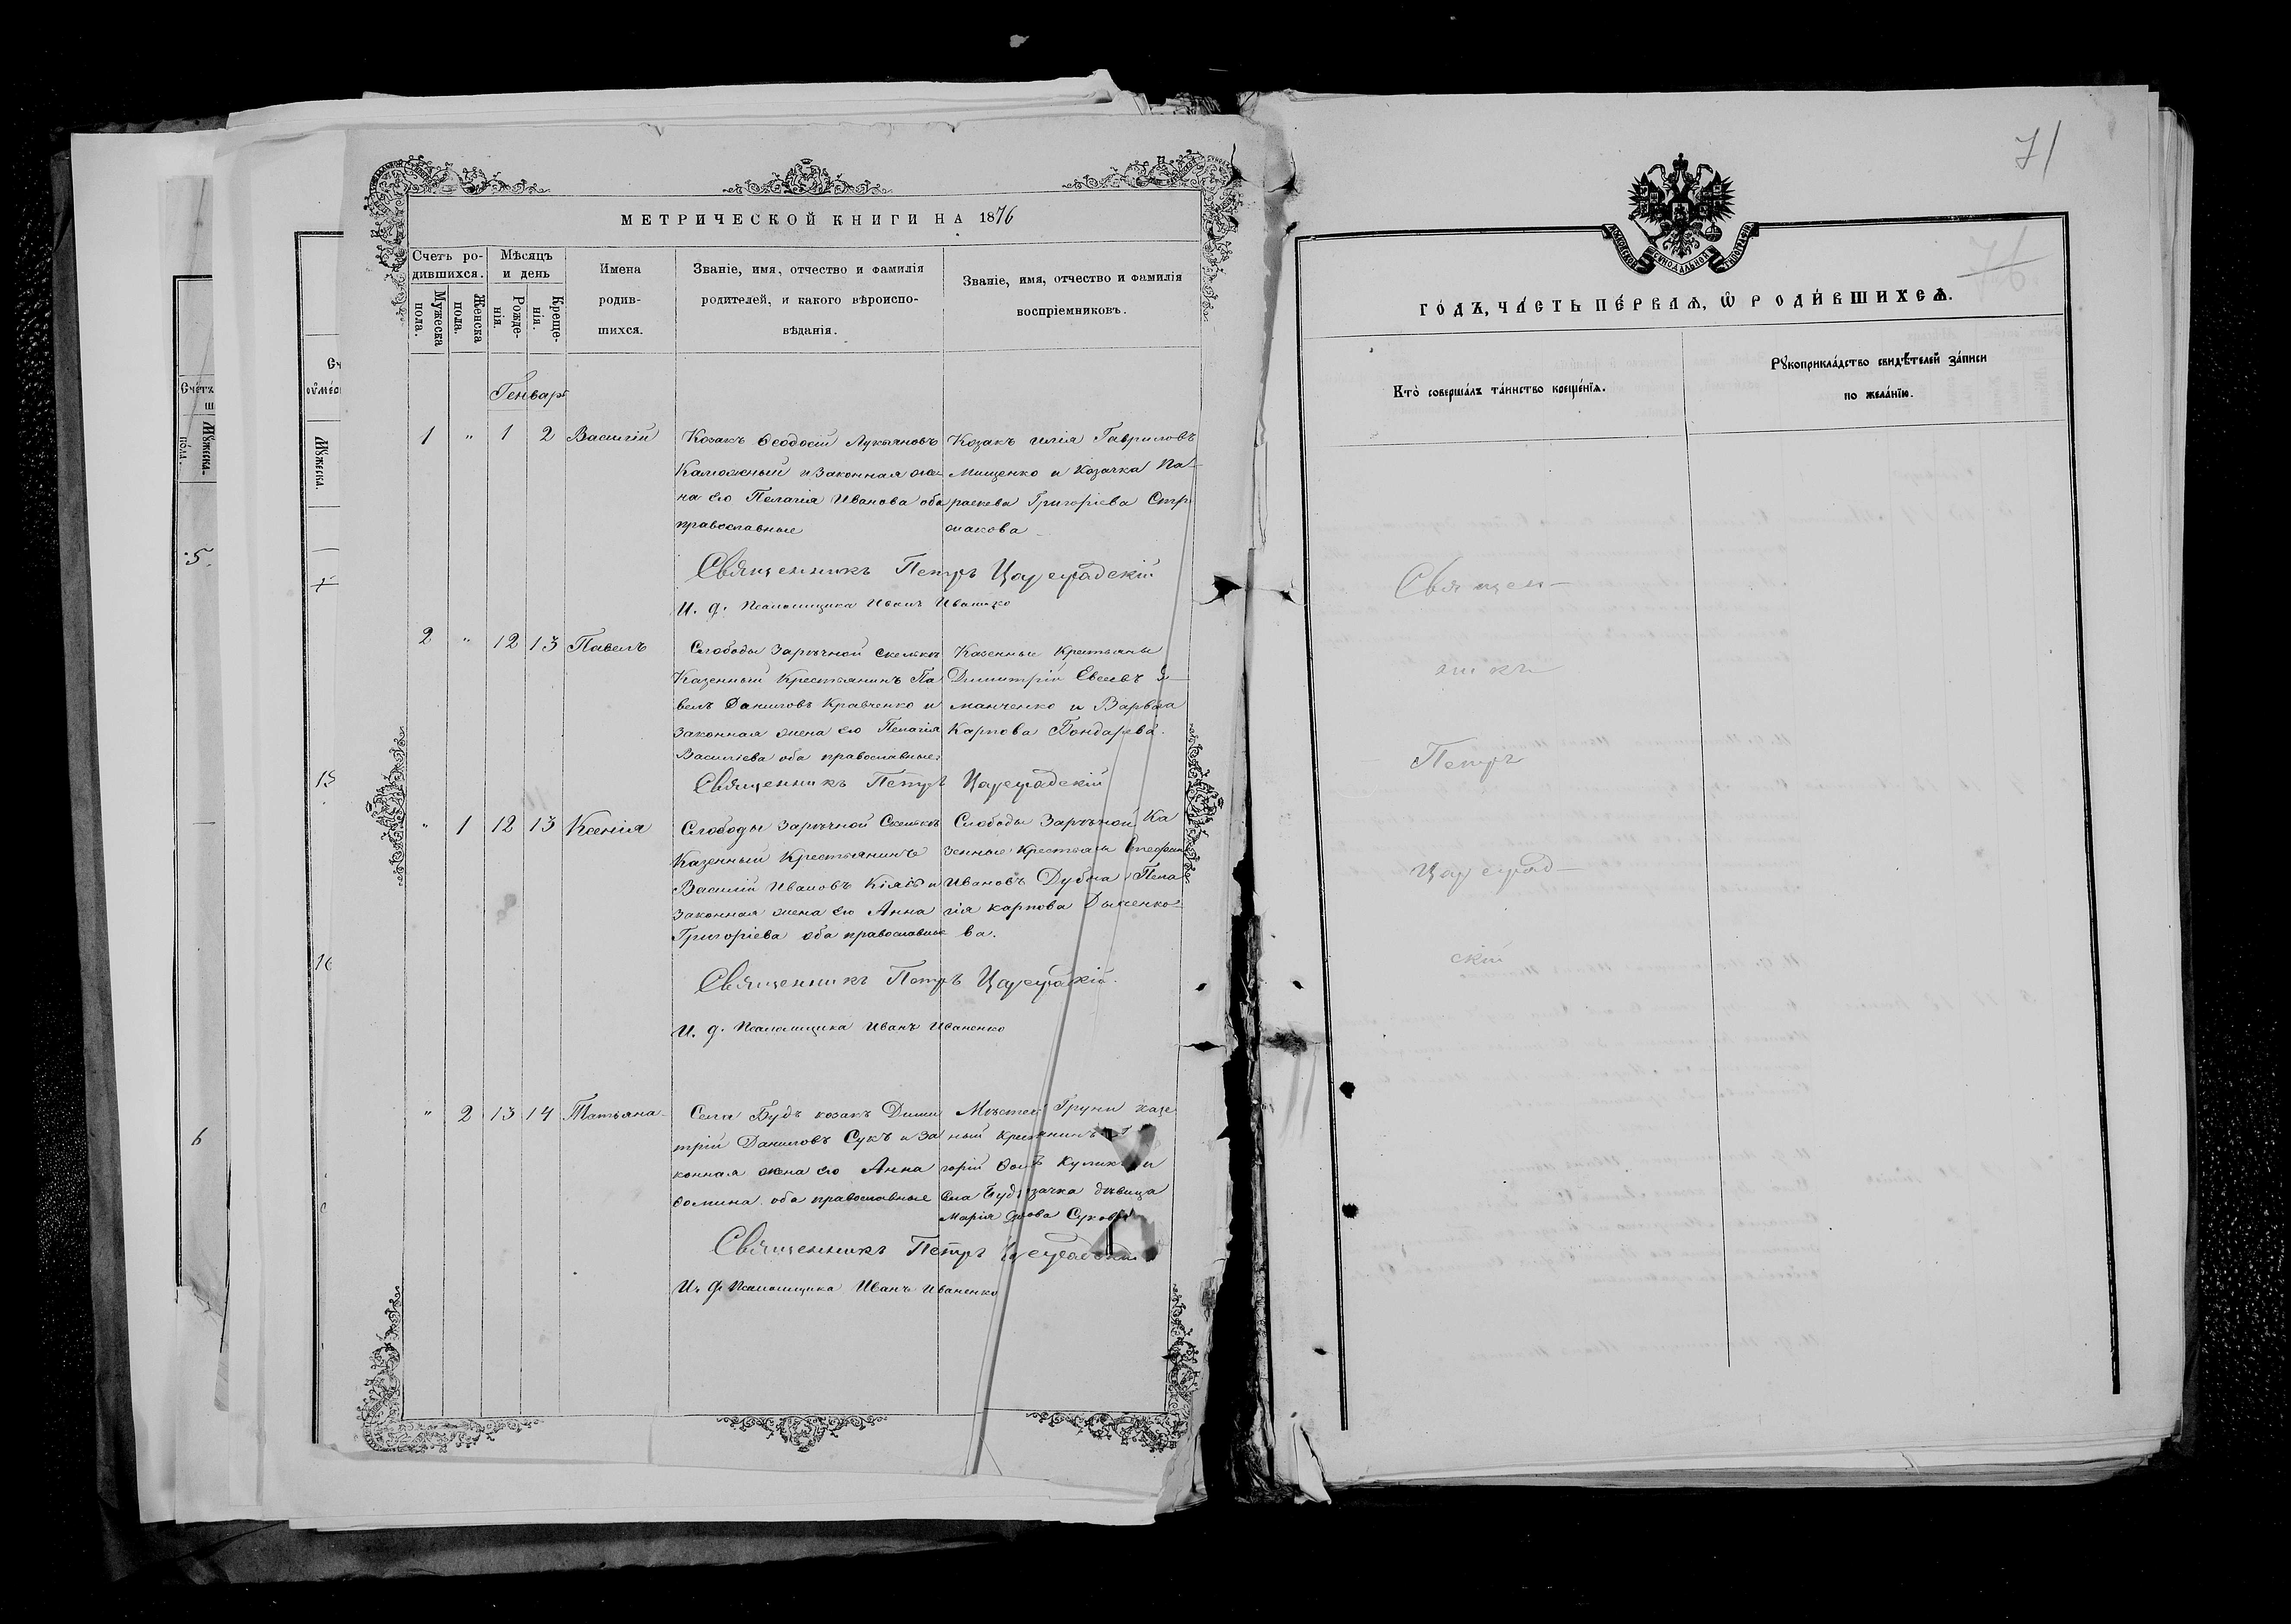 МЕТРИЧЕСКОЙ КНИГИ НА 1876
Счетъ ро-
дившихся.
Мѣсяцъ
и день
Мужеска
пола.
Женска
пола.
Рожде-
нія.
Креще-
нія.
Имена
родив-
шихся.
Званіе, имя, отчество и фамилія
родителей, и какого вѣроиспо-
вѣданія.
Званіе, имя, отчество и фамилія
воспріемниковъ.
Генварь
1 " 1 2 Василій
Козакъ Ѳеодосій Лукьяновъ
и законная же-
на его Пелагія Иванова оба
православные
Козакъ Илія Гавриловъ
Мищенко и козачка Па-
раскева Григоріева
Священникъ Петръ Цареградскій
И. д. Псаломщика Иванъ Иваненко
2 " 12 13 Павелъ
Слободы Зарѣчной
Казенный Крестьянинъ Па
велъ Даниловъ Кравченко и
законная жена его Пелагія
Васильева оба православные
Казенные Крестьяне
Димитрій Евсеевъ
манченко и Варвара
Карпова Бондарева.
Священникъ Петръ Цареградскій
" 1 12 13 Ксенія
Слободы Зарѣчной
Казенный Крестьянинъ
Василій Ивановъ и
законная жена его Анна
Григоріева оба православные
Слободы Зарѣчной Ка
зенные крестьяне Стефанъ
Ивановъ Дубна Пела
гія Карпова Дыченко-
ва.
Священникъ Петръ Цареградскій.
И. д. Псаломщика Иванъ Иваненко
" 2 13 14 Татьяна
Села Будъ козакъ Дими
трій Даниловъ Сукъ и за
конная жена его Анна
Ѳомина оба православные
Груни казе
ный
горій и
дѣвица
Марія
Священникъ Петръ Цареградскій
И. д. Псаломщика Иванъ Иваненко
71
76
МОСКОВСКОЙ СѴНОДАЛЬНОЙ ТИПОГРАФІИ
ГО́ДЪ, ЧА́СТЬ ПЕ́РВАѦ, Ѡ҆ РОДИ́ВШИХСѦ.
Кто̀ соверша́лъ та́инство креще́нїѧ.
Рꙋкоприкла́дство свидѣ́телей за́писи
по жела́нїю.
Священ-
никъ
Петръ
Цареград-
скій
Счетъ
5
6
15
16